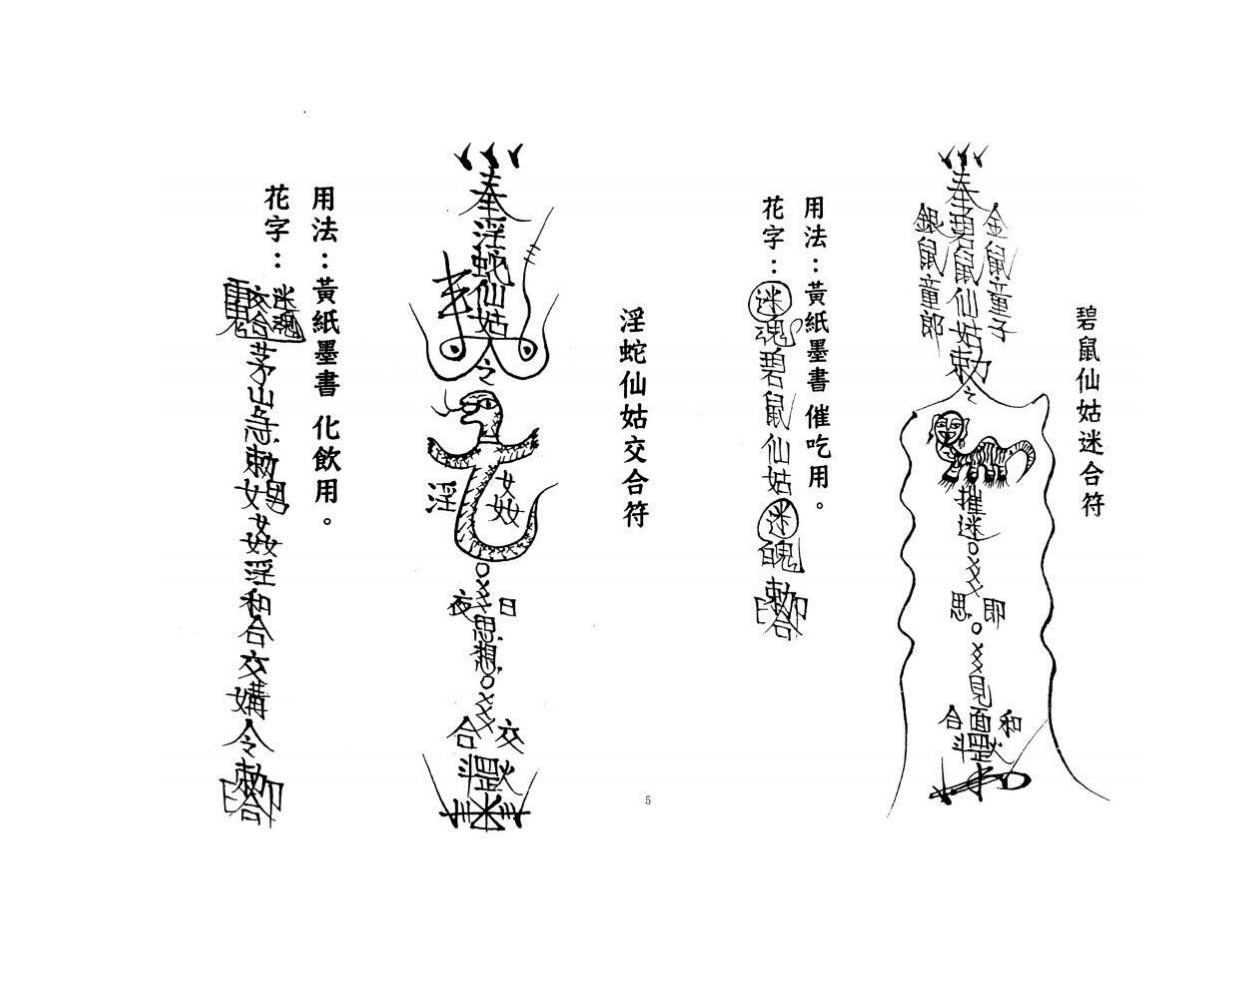 碧鼠仙姑迷合符
金鼠童子
奉碧鼠仙姑勅令
銀鼠童郎
摧迷
即
思
見面
和
合
斗
用法：黃紙墨書催吃用。
花字：迷魂碧鼠仙姑迷魄勅
淫蛇仙姑交合符
奉淫蛇仙姑令
姦
淫
日
夜
思想
交
合
斗
用法：黃紙墨書化飲用。
花字：
迷魂
交合
茅山
勅
姦淫和合交媾令勅
5